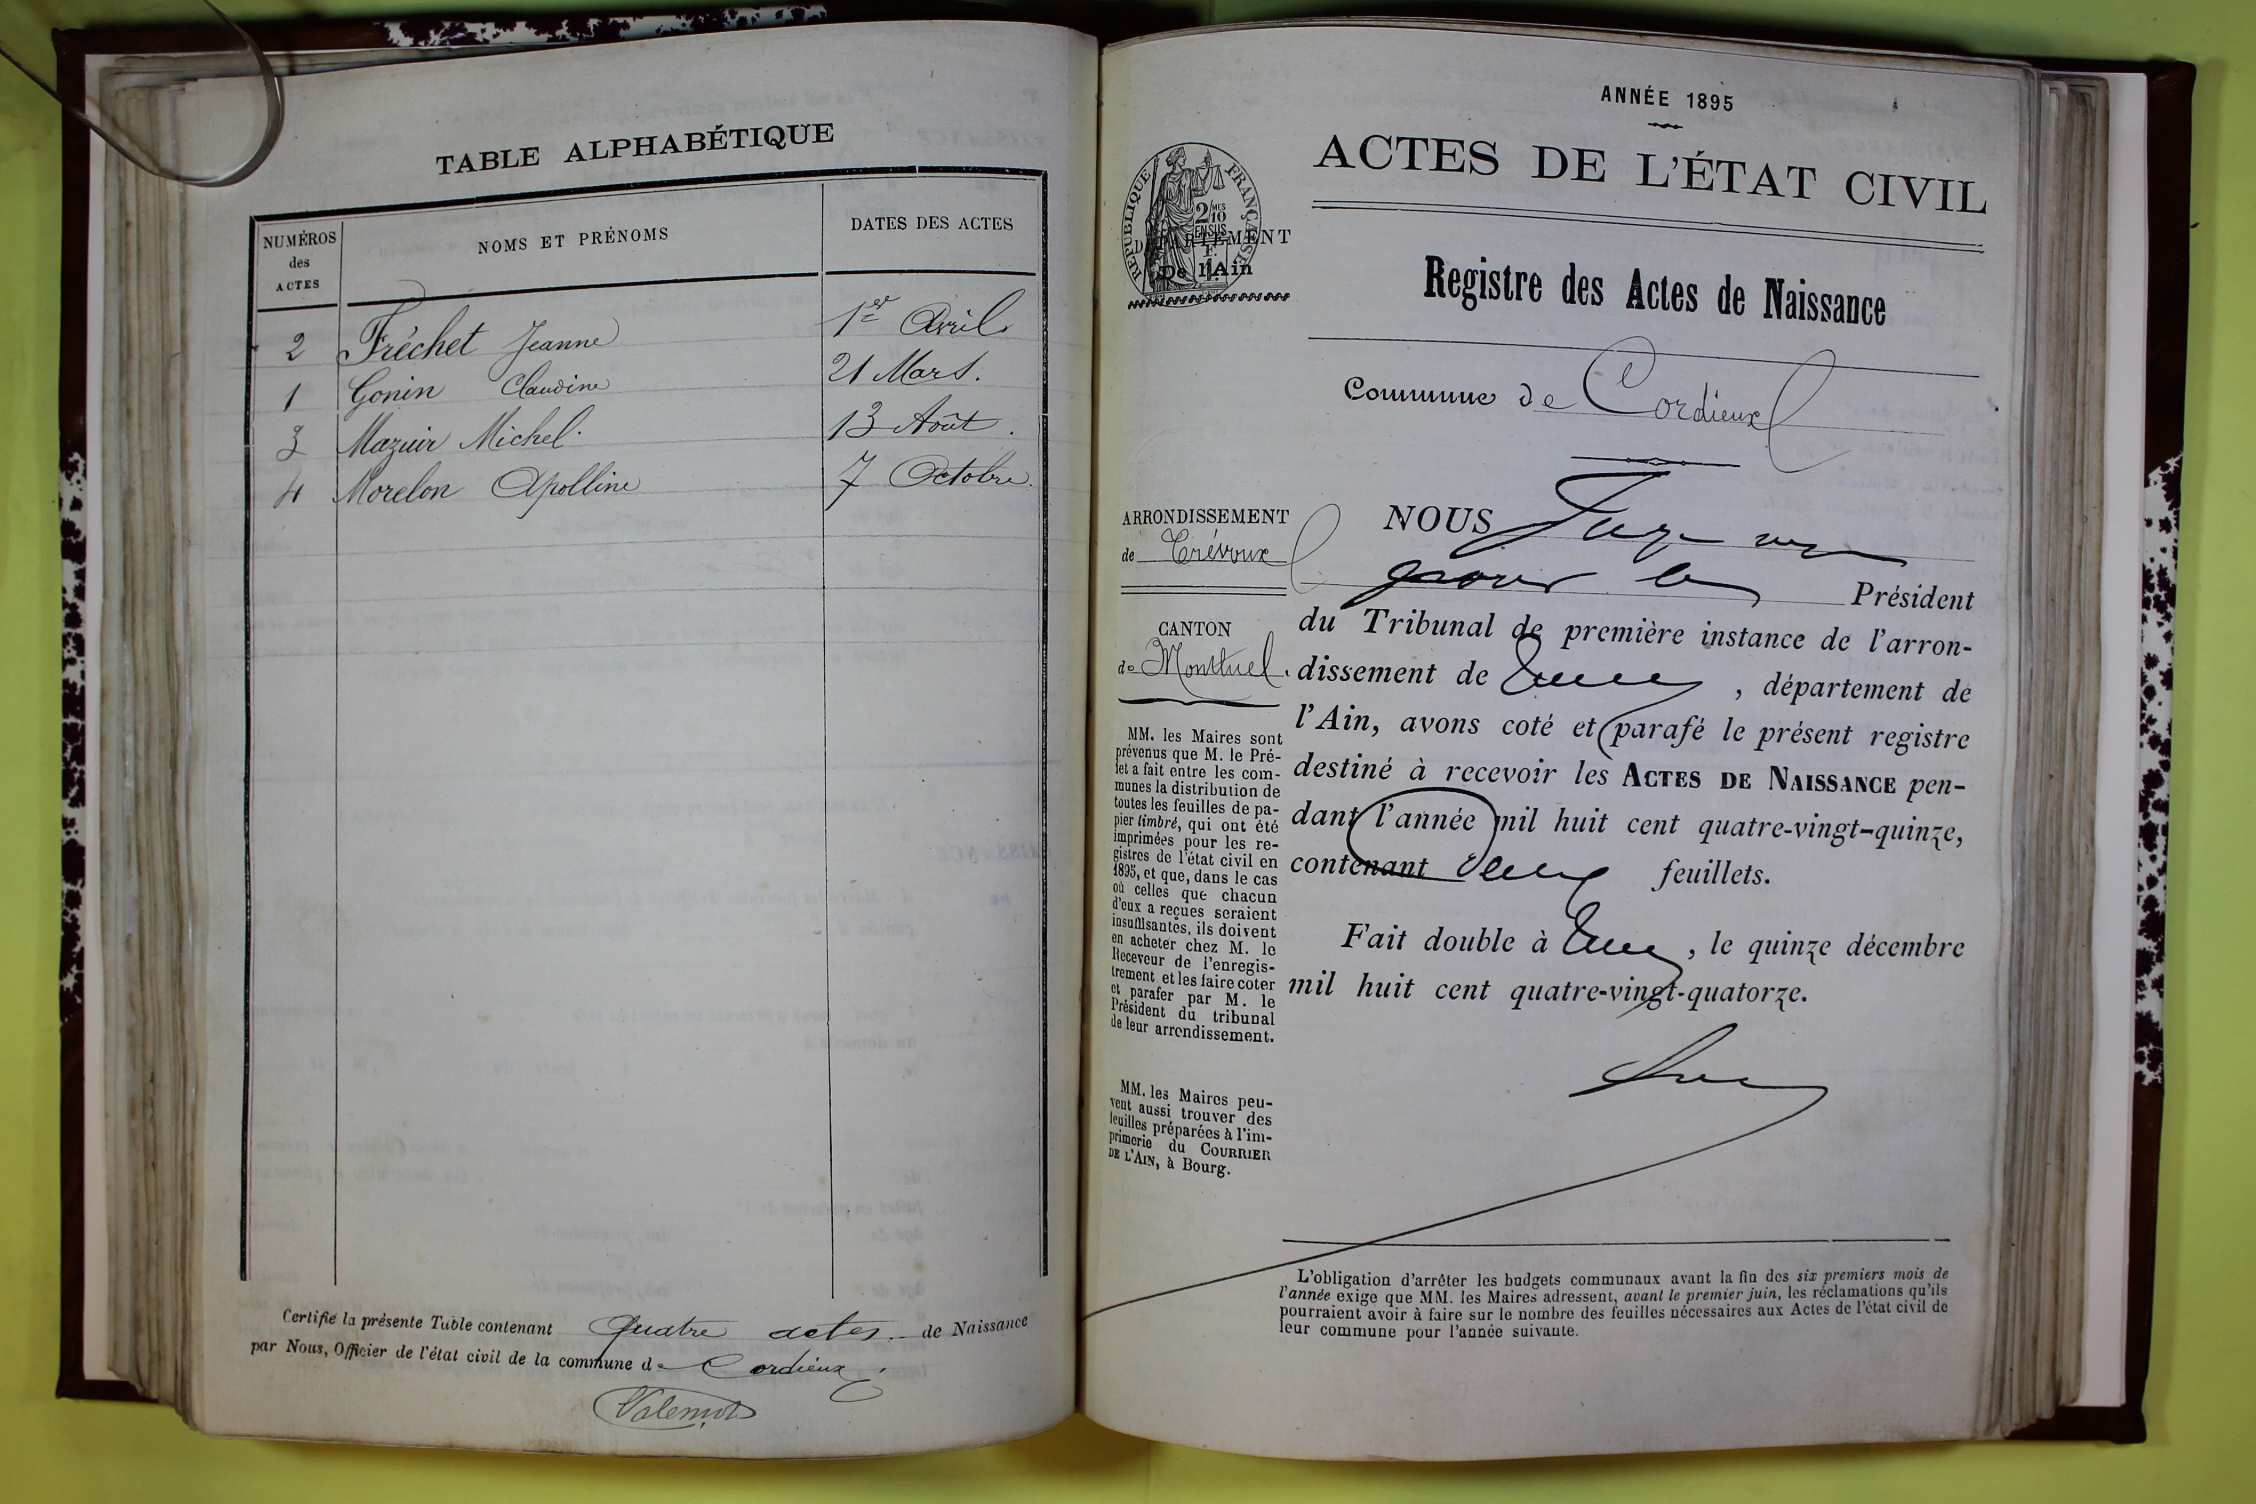 TABLE ALPHABÉTIQUE
NUMÉROS des ACTES
NOMS ET PRÉNOMS
DATES DES ACTES
2 Fréchet Jeanne 1er Avril
1 Gonin Claudine 21 Mars.
3 Mazuir Michel. 13 Août.
4 Morelon Apolline 7 Octobre.
Certifié la présente Table contenant Quatre actes. de Naissance
par Nous, Officier de l'état civil de la commune de Cordieux.
ANNÉE 1895
ACTES DE L'ÉTAT CIVIL
RÉPUBLIQUE FRANÇAISE
2/10 EN SUS
DÉPARTEMENT
De l'Ain
Registre des Actes de Naissance
Commune de Cordieux
ARRONDISSEMENT
de Trévoux
CANTON
de Montluel.
MM. les Maires sont
prévenus que M. le Pré-
fet a fait entre les com-
munes la distribution de
toutes les feuilles de pa-
pier timbré, qui ont été
imprimées pour les re-
gistres de l'état civil en
1895, et que, dans le cas
où celles que chacun
d'eux a reçues seraient
insuffisantes, ils doivent
en acheter chez M. le
Receveur de l'enregis-
trement et les faire coter
et parafer par M. le
Président du tribunal
de leur arrondissement.
MM. les Maires peu-
vent aussi trouver des
feuilles préparées à l'im-
primerie du COURRIER
DE L'AIN, à Bourg.
NOUS Juge
pour le Président
du Tribunal de première instance de l'arron-
dissement de , département de
l'Ain, avons coté et parafé le présent registre
destiné à recevoir les ACTES DE NAISSANCE pen-
dant l'année mil huit cent quatre-vingt-quinze,
contenant feuillets.
Fait double à , le quinze décembre
mil huit cent quatre-vingt-quatorze.
L'obligation d'arrêter les budgets communaux avant la fin des six premiers mois de
l'année exige que MM. les Maires adressent, avant le premier juin, les réclamations qu'ils
pourraient avoir à faire sur le nombre des feuilles nécessaires aux Actes de l'état civil de
leur commune pour l'année suivante.